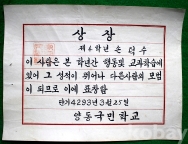 상장
제6학년 손덕수
이 사람은 본 학년간 행동및 교과학습에
있어 그 성적이 뛰어나 다른사람의 모범
이 되므로 이에 표창함
단기4293년3월25일
양동국민학교
kobay